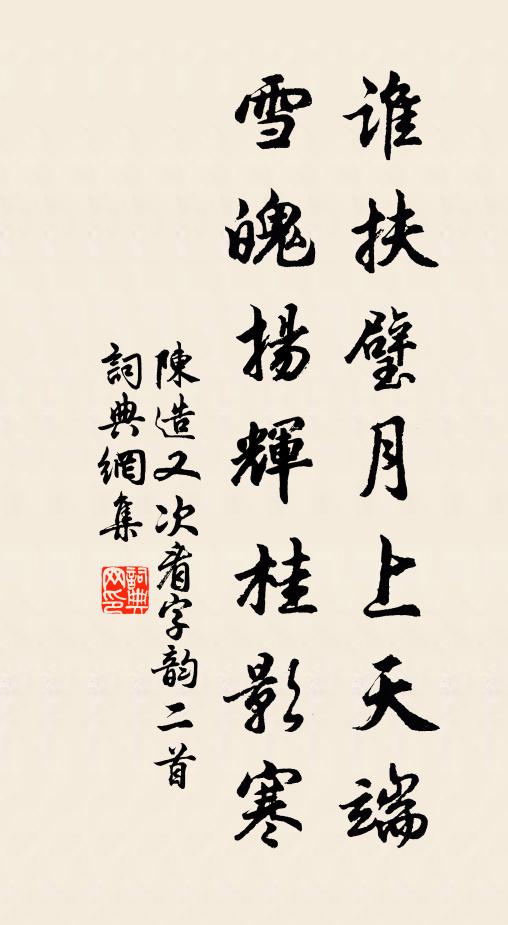 誰扶璧月上天端
雪魄揚輝桂影寒
陳造又次看字韵二首
詞典網集
詞典網印